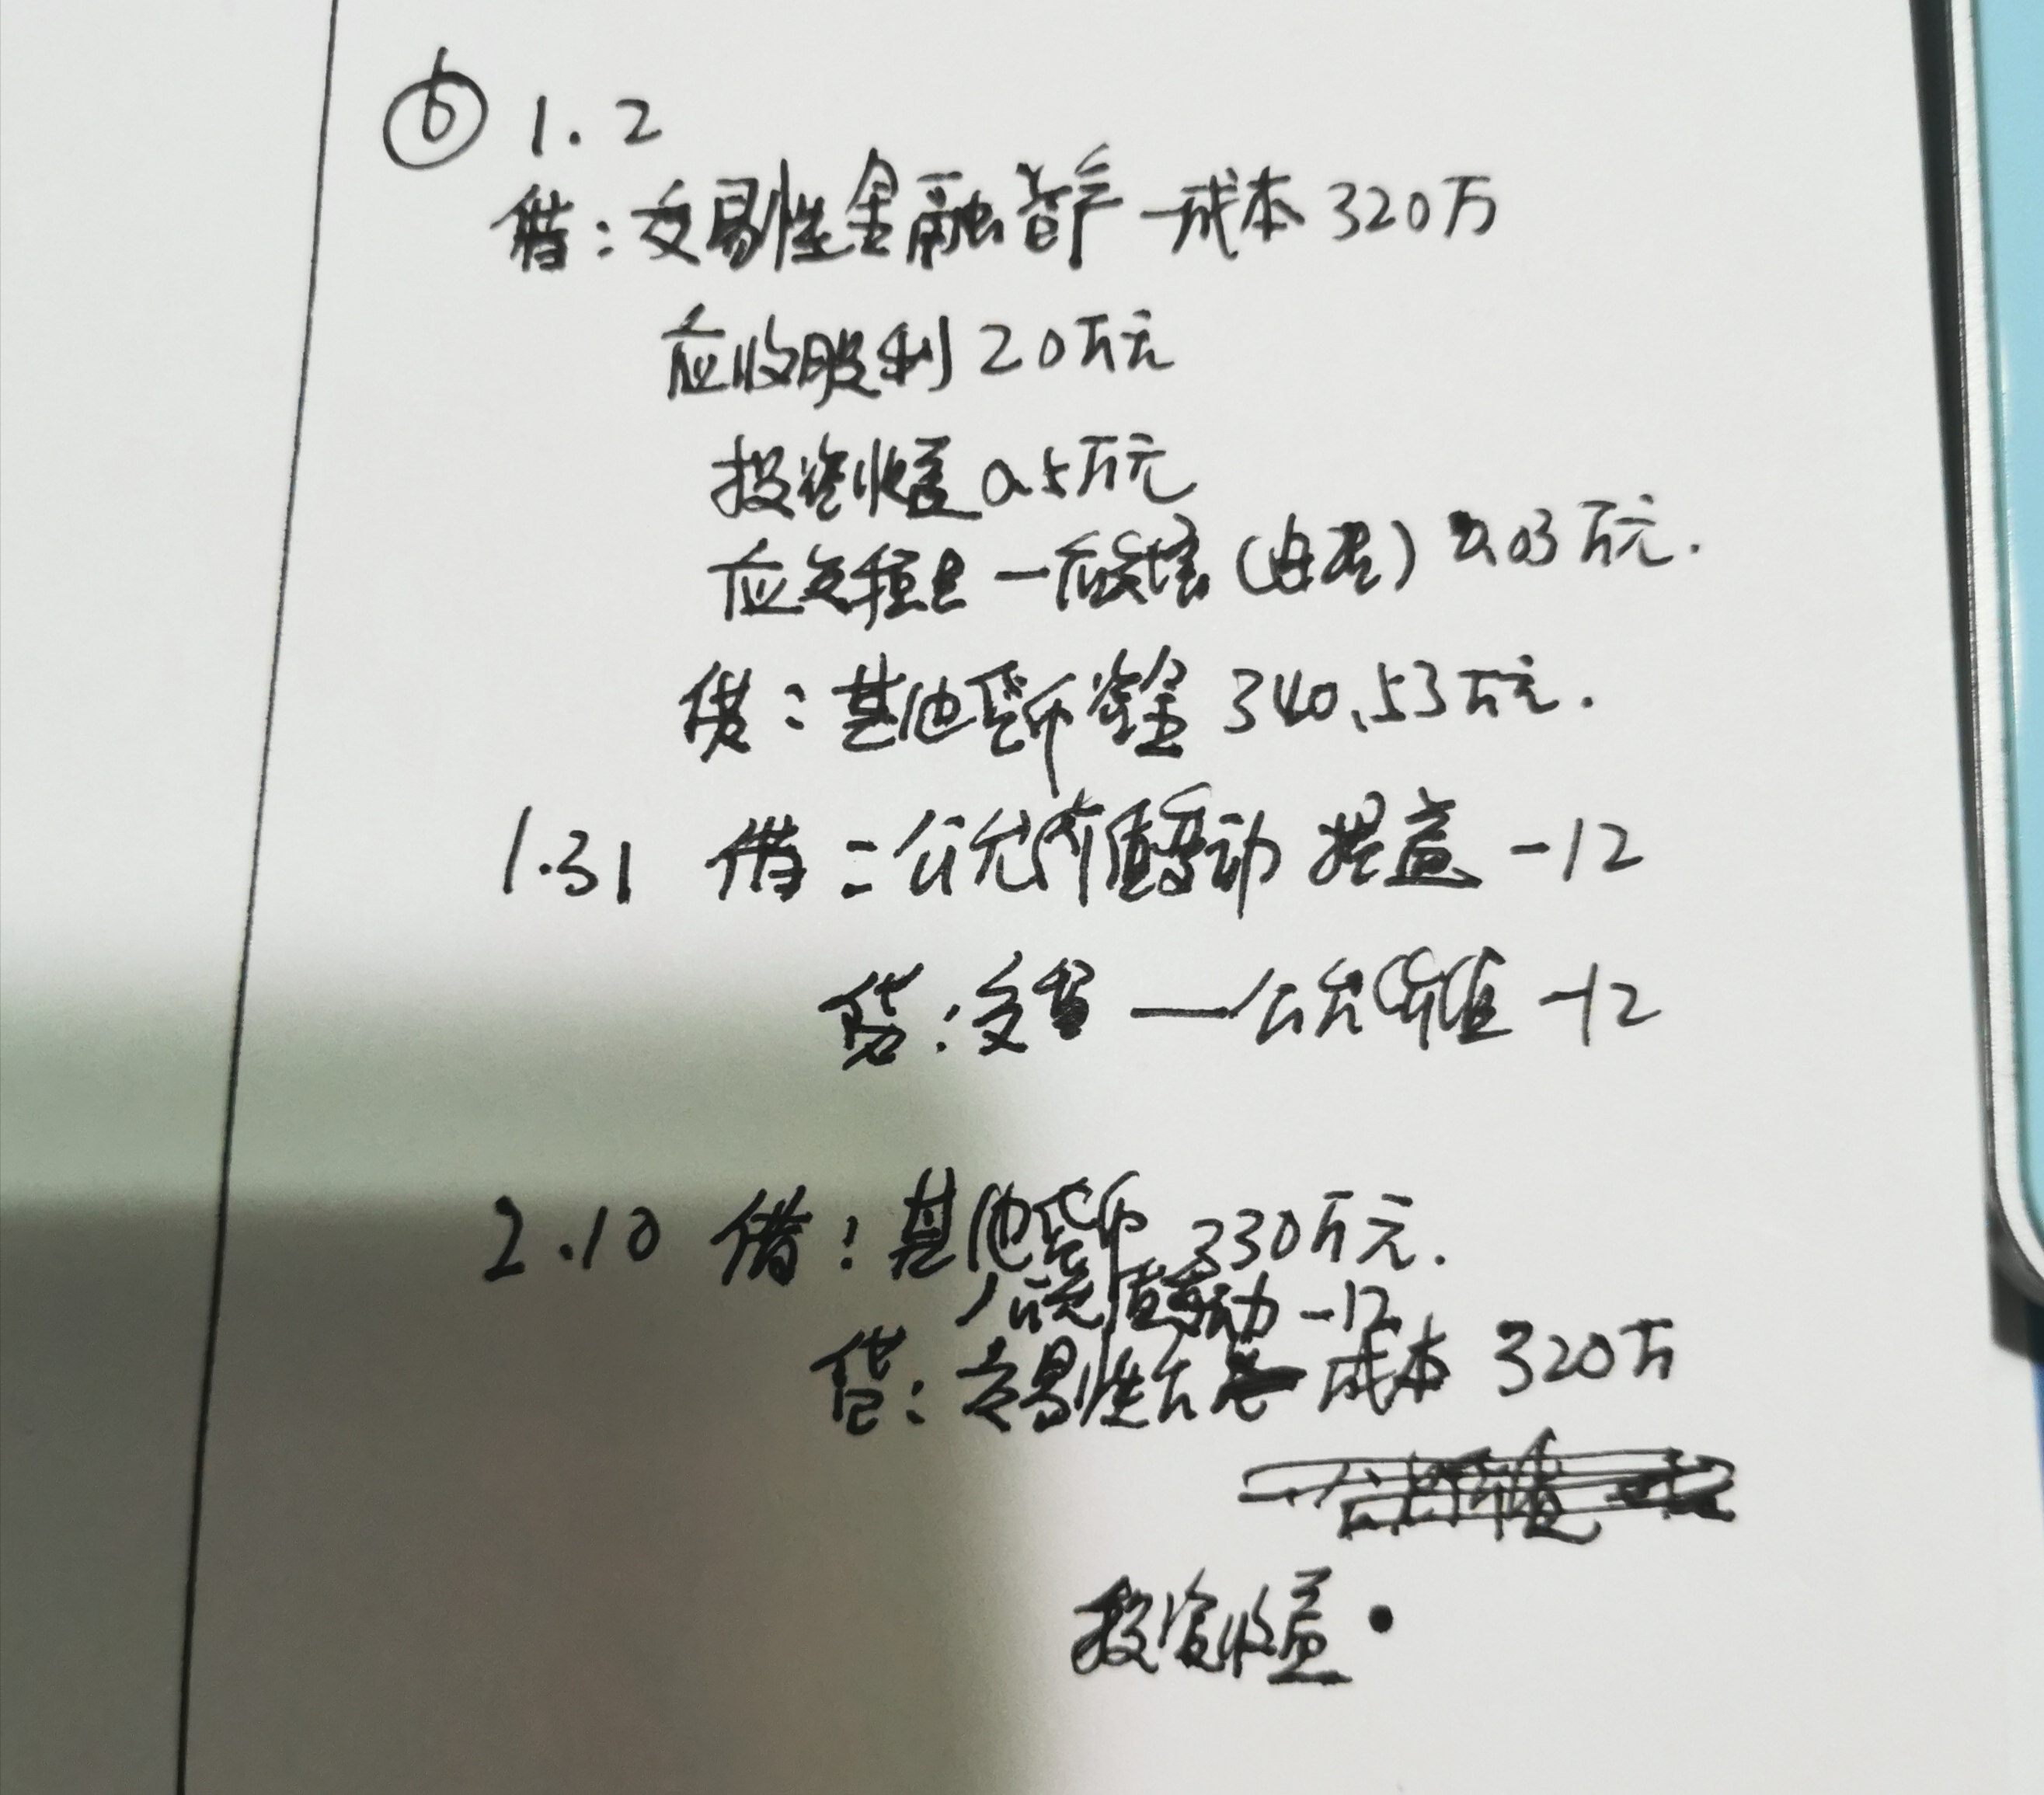 ⑥ 1.2
借:交易性金融资产—成本 320万
应收股利 20万元
投资收益 0.5万元
应交税费—应交增(进项) 0.03万元.
贷:其他货币资金 340.53万元.
1.31 借:公允价值变动损益 -12
贷:交 —公允价值 -12
2.10 借:其他货币 330万元.
公允价值变动 -12
贷:交易性 成本 320万
投资收益